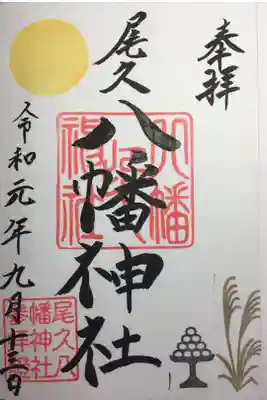 奉拝
尾久八幡神社
令和元年九月十三日
尾久八
幡神社